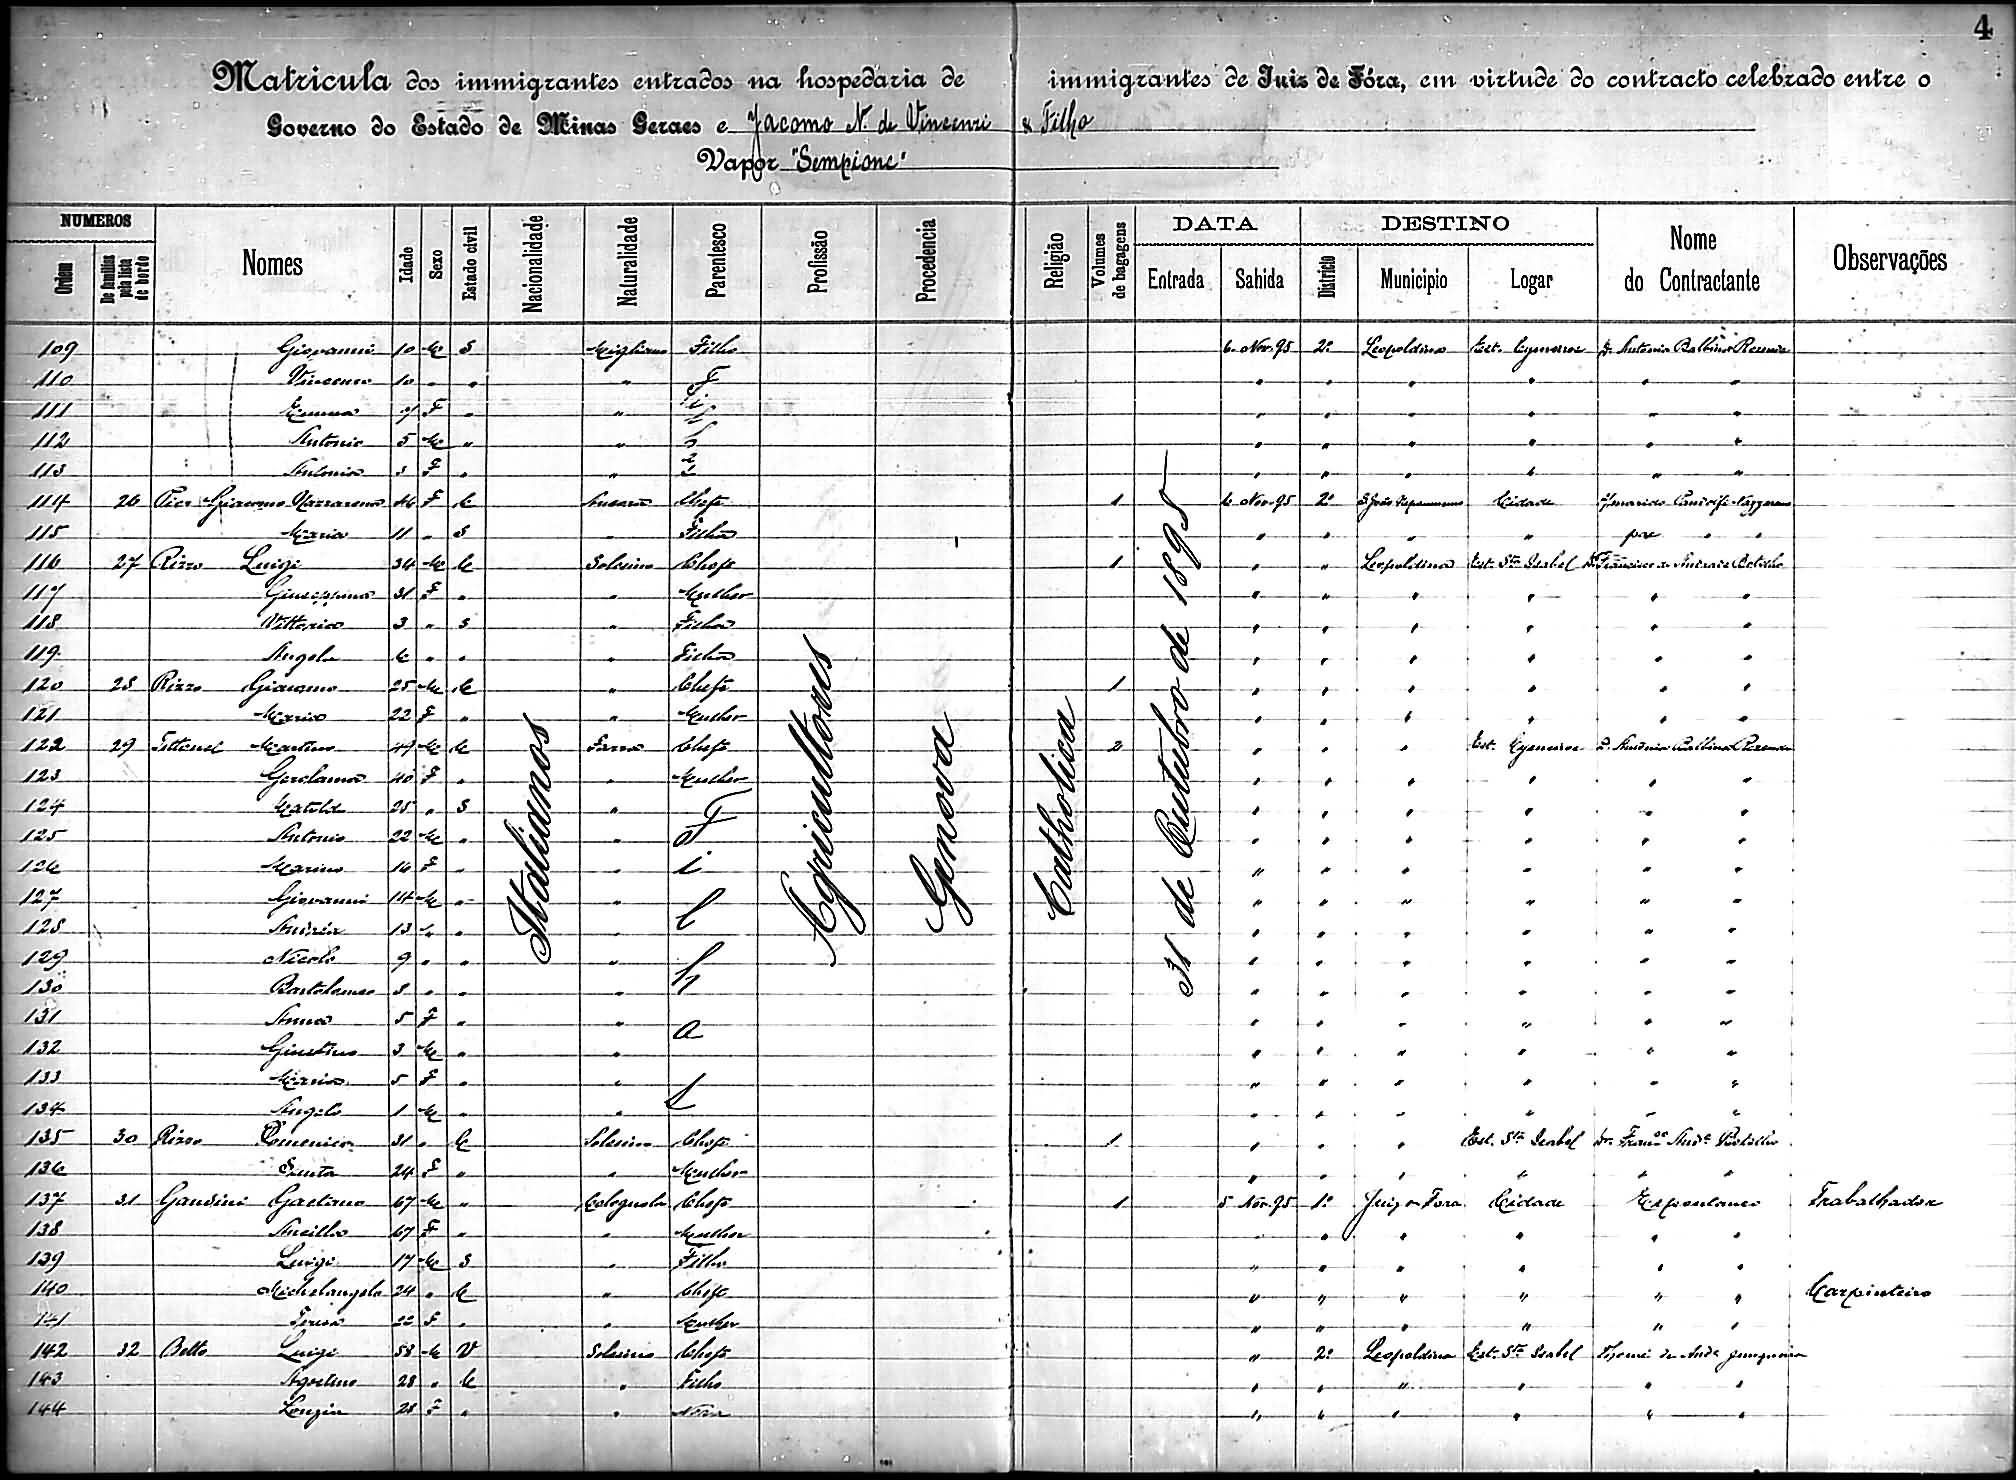 4
Matricula dos immigrantes entrados na hospedaria de immigrantes de Juiz de Fóra, em virtude do contracto celebrado entre o
Governo do Estado de Minas Geraes e Jacomo N. de Vincenzi & Filho
Vapor "Sempione"
NUMEROS DATA DESTINO
Ordem De familias pela lista de bordo Nomes Idade Sexo Estado civil Nacionalidade Naturalidade Parentesco Profissão Procedencia Religião Volumes de bagagens Entrada Sahida Districto Municipio Logar Nome do Contractante Observações
Italianos
Agricultores
Genova
Catholica
31 de Outubro de 1895
109 Giovanni 10 M S Migliano Filho 6 Nov. 95 2º Leopoldina Est. Antonio Balbino
110 Vincenzo 10 " " " " " " " " "
111 Emma F " " " " " " " "
112 Antonio 5 M " " " " " " " "
113 Antonia 3 F " " " " " " " "
Filhos
114 26 Pier Giacomo Nazzarena 46 F C Chefe 1 6 Nov. 95 2º S. João Nepomuceno Cidade
115 Maria 11 " S " Filha " " " " " "
116 27 Rizzo Luigi 34 M C Solesino Chefe 1 " " Leopoldina Est. Sta Isabel Dr. Francisco de Andrade Botelho
117 Giuseppina 31 F " " Mulher " " " " " "
118 Vittoria 3 " S " Filha " " " " " "
119 Angela " " " Filha " " " " " "
120 28 Rizzo Giacomo 25 M C " Chefe 1 " " " " " "
121 Maria 22 F " " Mulher " " " " " "
122 29 Martino 49 M C Farra Chefe 2 " " " Est. Antonio Balbino
123 Gerolama 40 F " " Mulher " " " " " "
124 Matilde 25 " S " " " " " " "
125 Antonio 22 M " " " " " " " "
126 16 F " " " " " " " "
127 Giovanni 14 M " " " " " " " "
128 Andrea 13 " " " " " " " " "
129 Nicolo 9 " " " " " " " " "
130 Bartolomeo " " " " " " " " "
131 Anna 5 F " " " " " " " "
132 3 M " " " " " " " "
133 Maria 5 F " " " " " " " "
134 Angelo 1 M " " " " " " " "
135 30 Rizzo Domenico 31 " C Solesino Chefe 1 " " " Est. Sta Isabel Dr. Franco Andr. Botelho
136 Santa 24 F " " Mulher " " " " " "
137 31 Gandini Gaetano 67 M " Colognola Chefe 1 5 Nov. 95 1º Juiz de Fora Cidade Espontaneo Trabalhador
138 Ancilla 67 F " " Mulher " " " " " "
139 Luigi 17 M S " Filho " " " " " "
140 Michelangelo 24 " C " Chefe " " " " " " Carpinteiro
141 Teresa 22 F " " Mulher " " " " " "
142 32 Bello Luigi 58 M V Solesino Chefe " 2º Leopoldina Est. Sta Isabel
143 Agostino 28 " C " Filho " " " " " "
144 28 F " " Nora " " " " " "